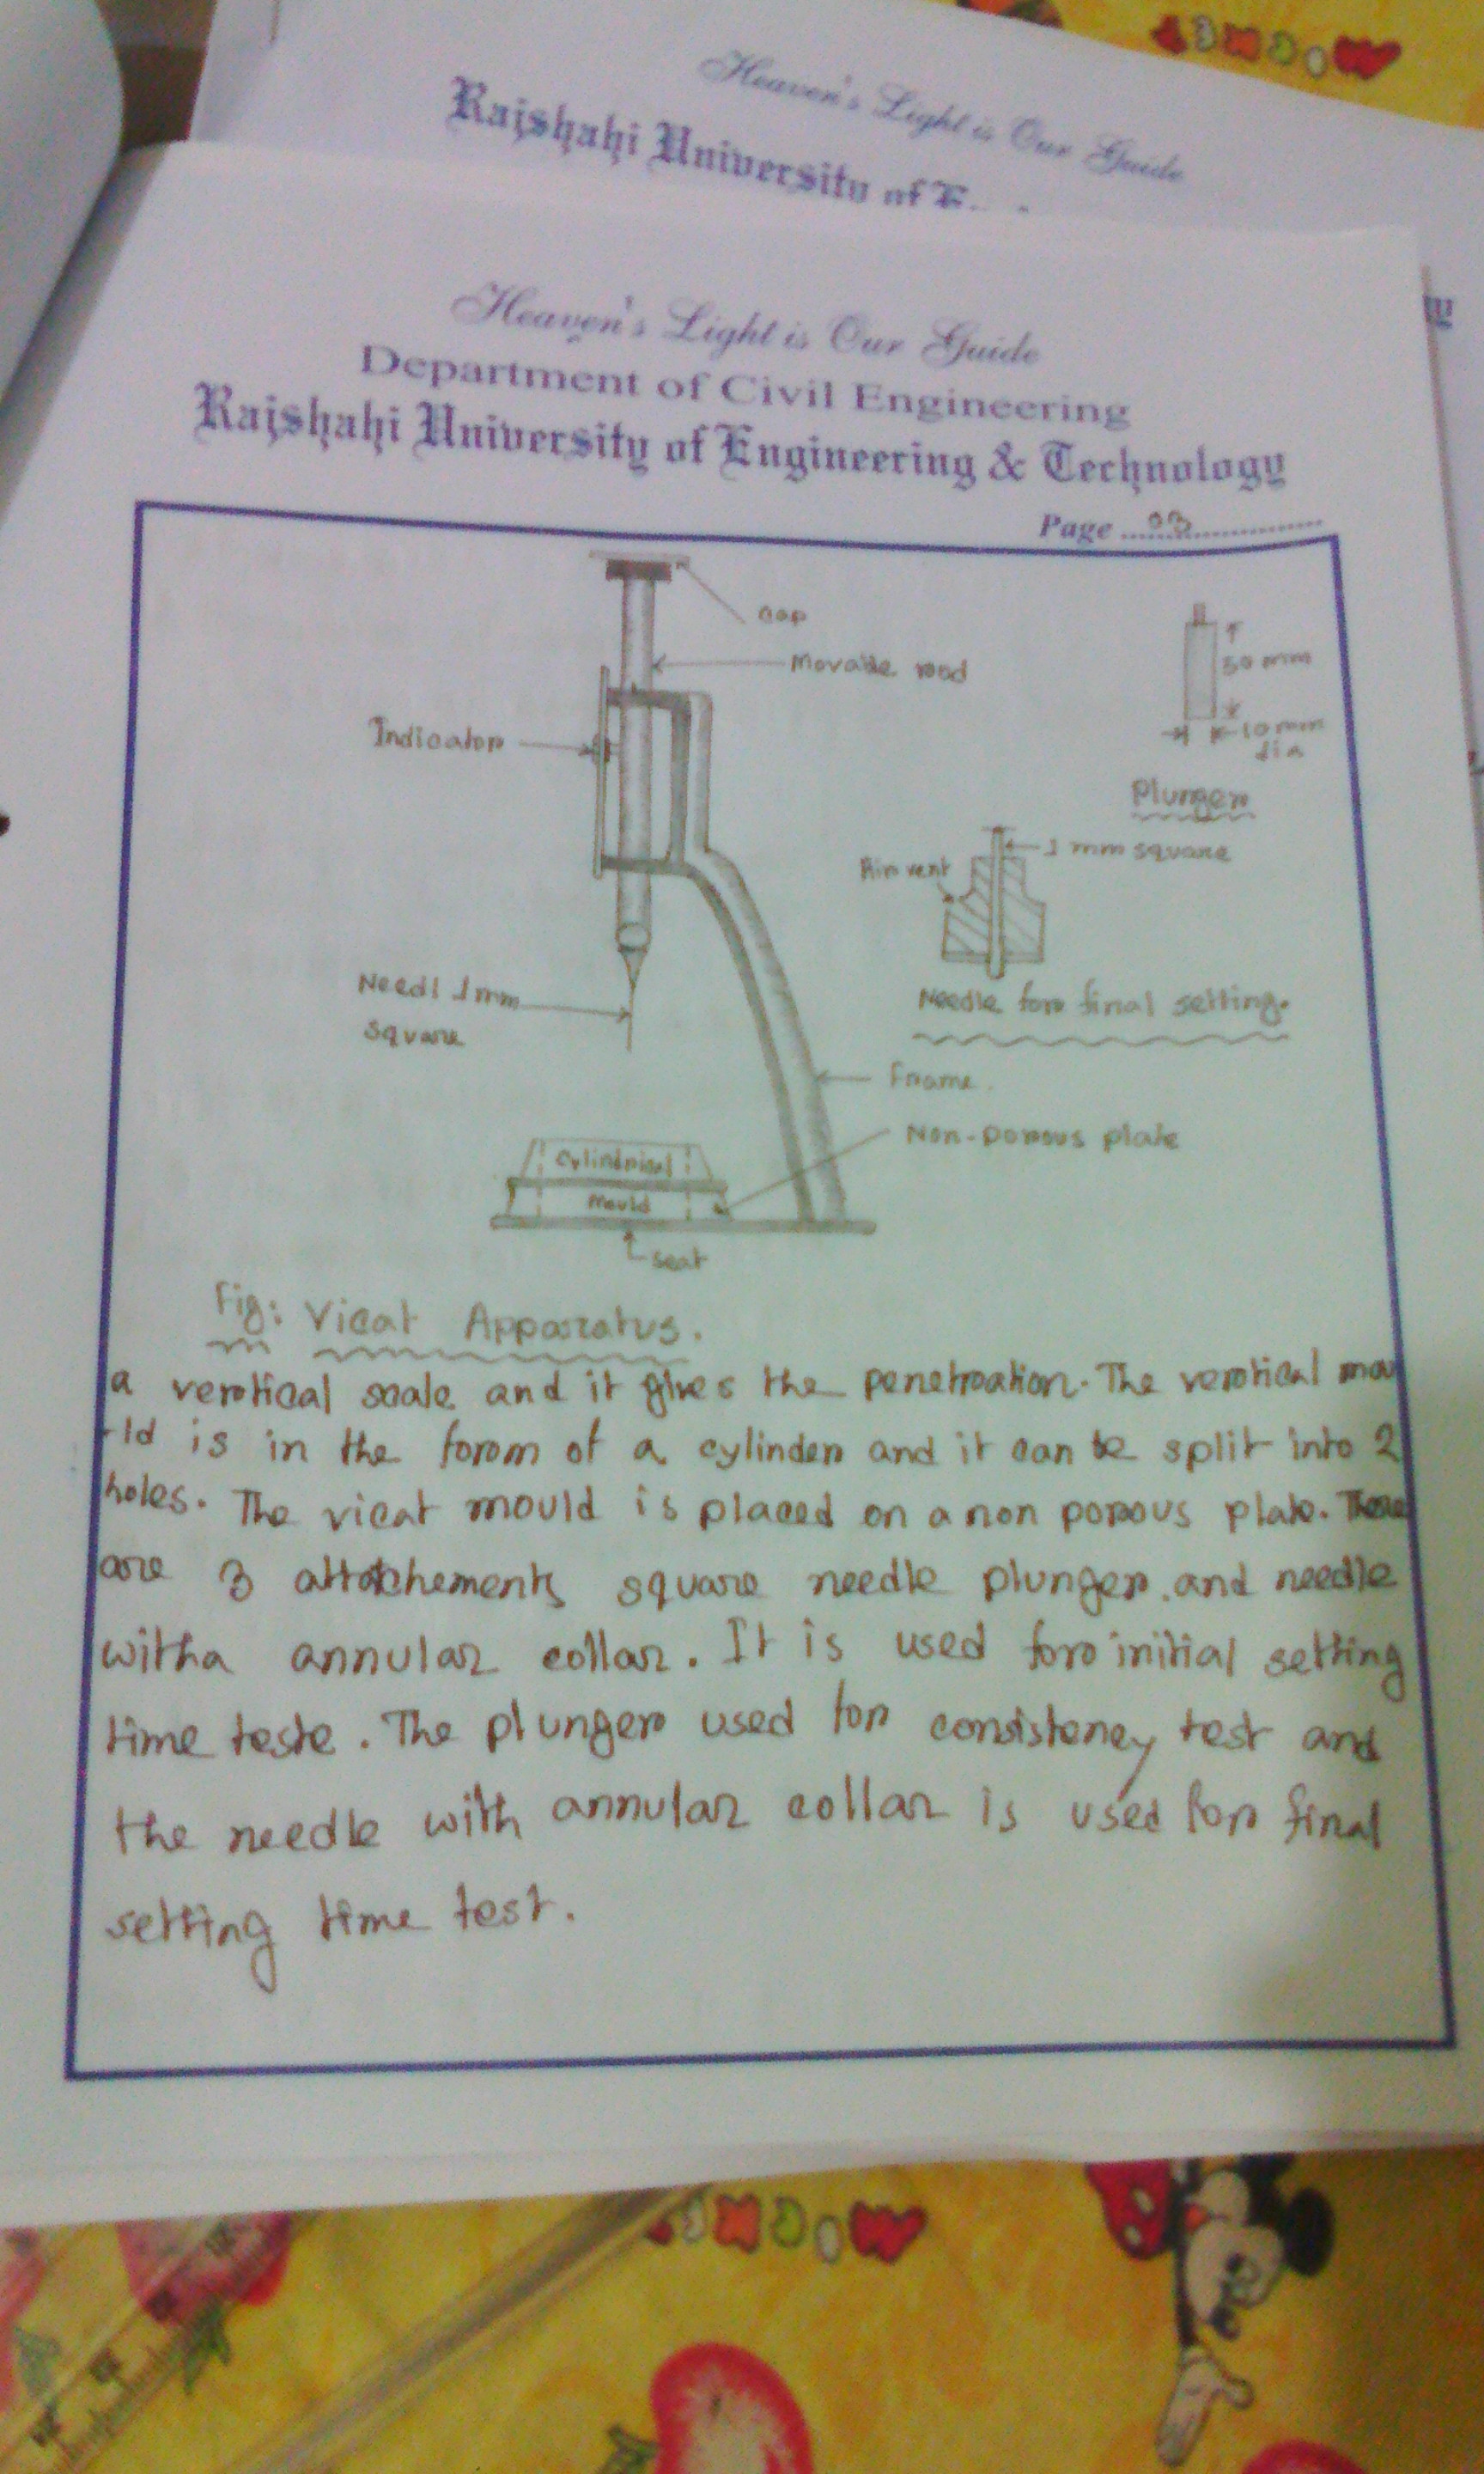 Heaven's Light is Our Guide
Rajshahi University of E
Heaven's Light is Our Guide
Department of Civil Engineering
Rajshahi University of Engineering & Technology
Page 03
Cap
Movable rod
Indicator
50 mm
10 mm
dia
Plunger
1 mm square
Air vent
Needl 1mm
square
Needle for final setting.
Frame
Non-porous plate
Cylindrical
Mould
seat
Fig: Vicat Apparatus.
a vertical scale and it gives the penetration. The vertical mou
-ld is in the form of a cylinder and it can be split into 2
holes. The vicat mould is placed on a non porous plate. There
are 3 attachements square needle plunger and needle
with a annular collar. It is used for initial setting
time teste. The plunger used for consisteney test and
the needle with annular collar is used for final
setting time test.